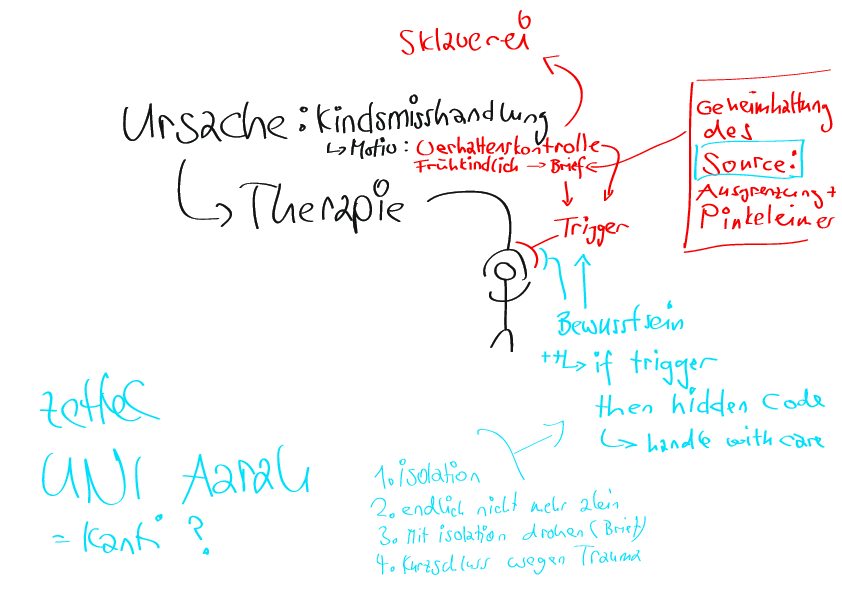 Sklaverei
Ursache: Kindsmisshandlung
↳ Motiv: Verhaltenskontrolle
Frühkindlich → Brief
Geheimhaltung
des
Source:
Ausgrenzung +
Pinkeleimer
↳ Therapie
Trigger
Bewusstsein
++↳ if trigger
then hidden Code
↳ handle with care
UNI Aarau
= Kanti?
1. isolation
2. endlich nicht mehr alein
3. Mit isolation drohen (Brief)
4. Kurzschluss wegen Trauma